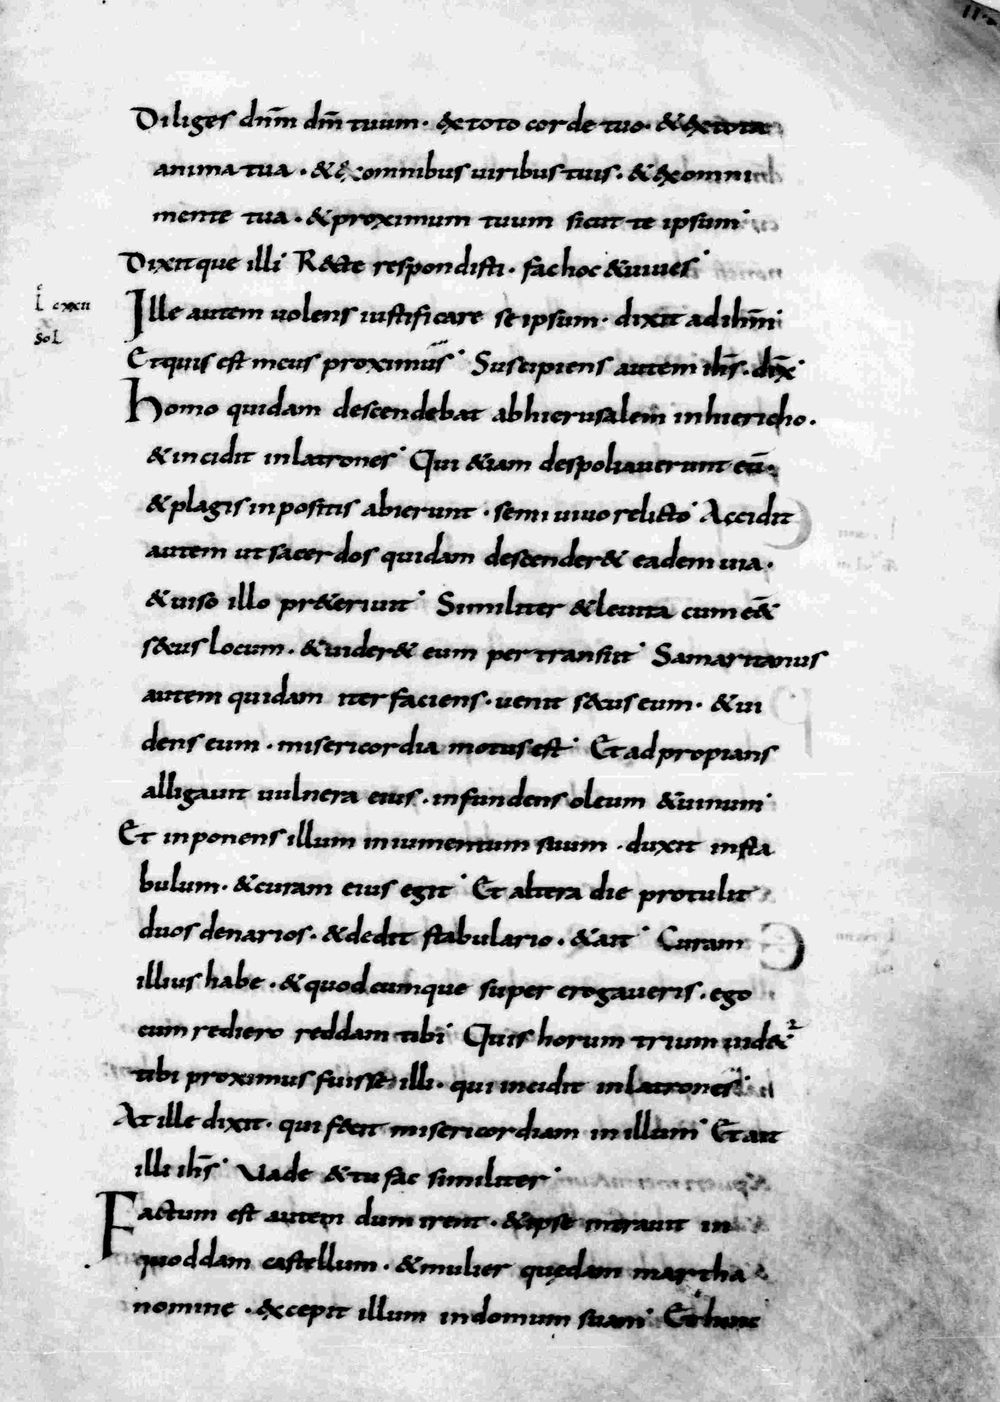 Diliges dn̄m dm̄ tuum · ex toto corde tuo · & ex tota
anima tua · & ex omnibus uiribus tuis · & ex omni
mente tua · & proximum tuum sicut te ipsum
Dixitque illi R&cte respondisti · fac hoc & uiues
L cxxii
Ille autem uolens iustificare se ipsum · dixit ad ihm̄
Sol
Et quis est meus proximus Suscipiens autem ihs̄ · dix̄
Homo quidam descendebat ab hierusalem in hiericho ·
& incidit in latrones Qui &iam despoliauerunt eū ·
& plagis inpositis abierunt · semi uiuo relicto Accidit
autem ut sacerdos quidam descender& eadem uia ·
& uiso illo pr&eriuit Similiter & leuita cum e&
s&cus locum · & uider& eum pertransiit Samaritanus
autem quidam iter faciens · uenit s&cus eum · & ui
dens eum · misericordia motus est Et adpropians
alligauit uulnera eius · infundens oleum & uinum
Et inponens illum in iumentum suum · duxit in sta
bulum · & curam eius egit Et altera die protulit
duos denarios · & dedit stabulario · & ait Curam
illius habe · & quodcumque super erogaueris · ego
cum rediero reddam tibi Quis horum trium uid&
tibi proximus fuisse illi · qui incidit in latrones
At ille dixit · qui fecit misericordiam in illum Et ait
illi ihs̄ Uade & tu fac similiter
Factum est autem dum irent · & ipse intrauit in
quoddam castellum · & mulier quędam martha
nomine · excepit illum in domum suam Et hunc